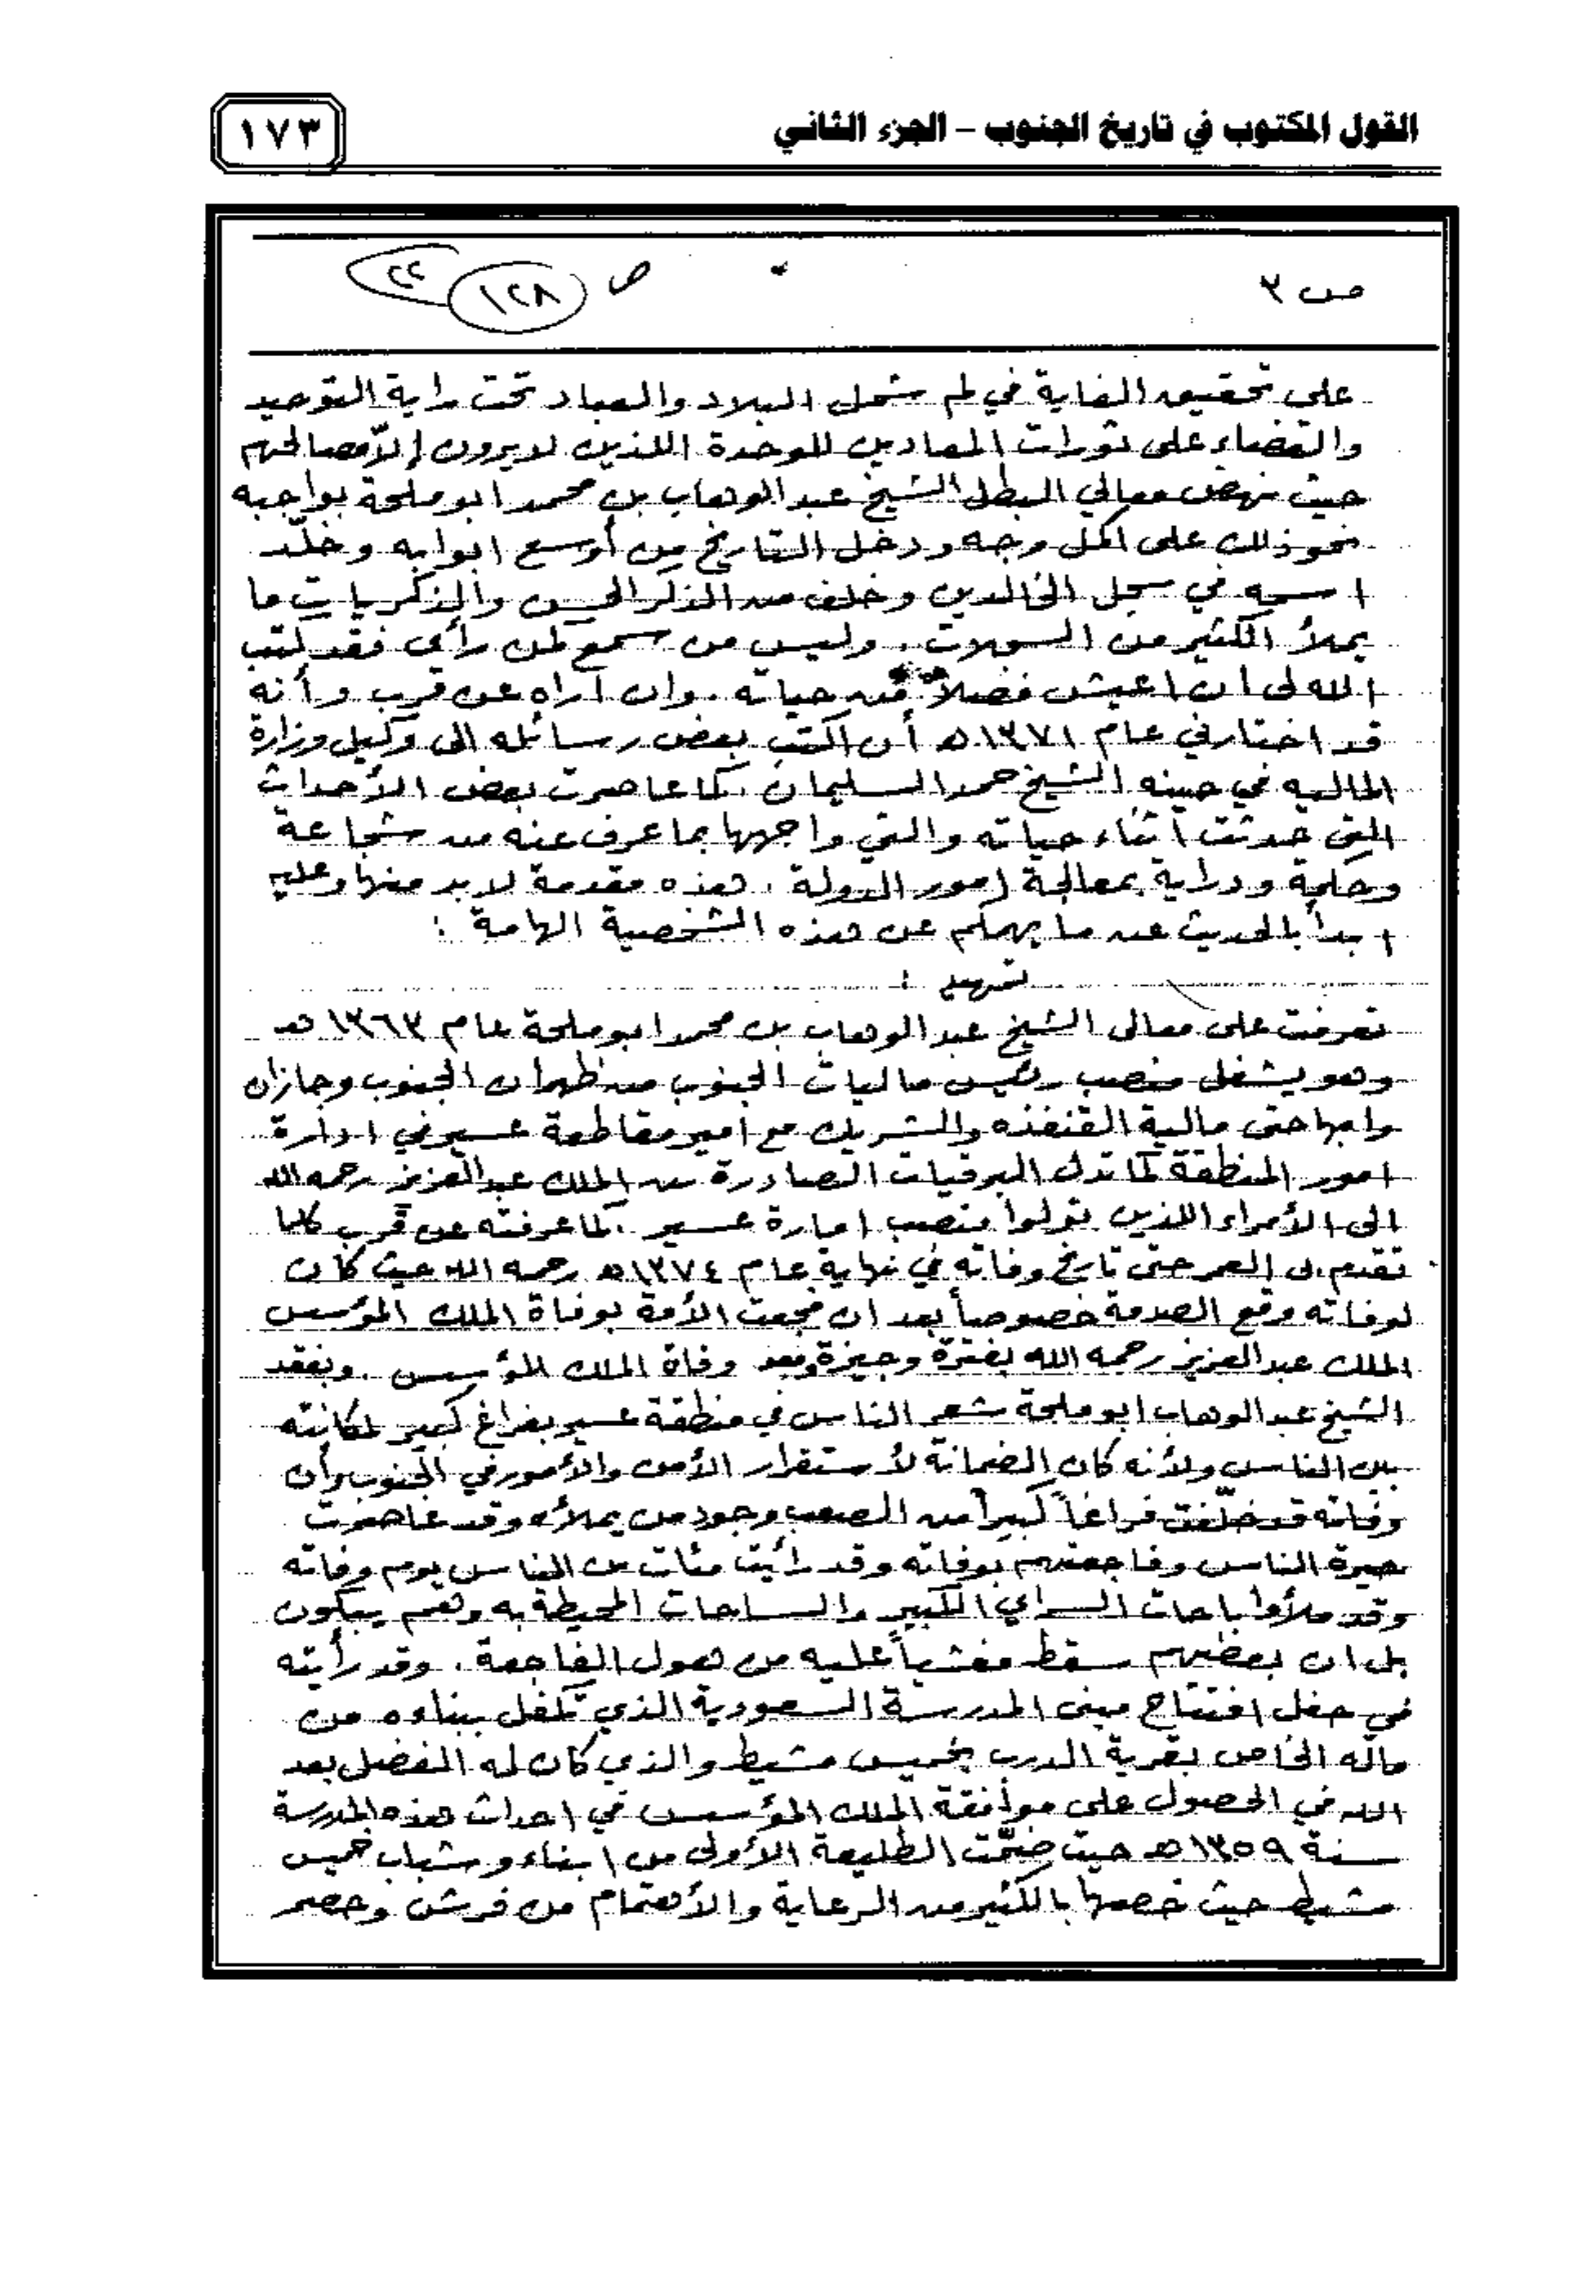 القول المكتوب في تاريخ الجنوب – الجزء الثاني
١٧٣
ص ٣
ص ١٢٨
٢٢
على تحقيق الغاية في لم شمل البلاد والعباد تحت راية التوحيد
والقضاء على ثورات المعادين للوحدة اللذين لا يرون إلاّ مصالحهم
حيث نهض معالي البطل الشيخ عبد الوهاب بن محمد ابو ملحة بواجبه
نحو ذلك على اكمل وجه ودخل التاريخ من أوسع ابوابه وخلّد
اسمه في سجل الخالدين وخلف من الذكر الحسن والذكريات ما
يملأ الكثير من السجلات . وليس من سمع كمن رأى فقد كتب
الله لى ان اعيش فصلاً من حياته . وان أراه عن قرب وأنه
قد اختارني عام ١٣٧١ هـ أن اكتب بعض رسائله الى وكيل وزارة
الماليه في حينه الشيخ حمد السليمان . كما عاصرت بعض الأحداث
التى حدثت أثناء حياته والتي واجهها بما عرف عنه من شجاعة
وحكمة ودراية بمعالجة امور الدولة . هذه مقدمة لابد منها وعليه
ابدأ بالحديث عن ما يهمكم عن هذه الشخصية الهامة :
تمهيد :
تعرفت على معالى الشيخ عبد الوهاب بن محمد ابو ملحة عام ١٣٦٣ هـ
وهو يشغل منصب رئيس ماليات الجنوب من ظهران الجنوب وجازان
وابها حتى مالية القنفذه والشريك مع أمير مقاطعة عسير في ادارة
امور المنطقة كما تدل البرقيات الصادرة من الملك عبد العزيز رحمه الله
الى الأمراء اللذين تولوا منصب امارة عسير . كما عرفته عن قرب كلما
تقدم بى العمر حتى تاريخ وفاته في نهاية عام ١٣٧٤ هـ رحمه الله حيث كان
لوفاته وقع الصدمة خصوصاً بعد ان فجعت الأمة بوفاة الملك المؤسس
الملك عبد العزيز رحمه الله بفترة وجيزة وبعد وفاة الملك المؤسس . وبفقد
الشيخ عبد الوهاب ابو ملحة شعر الناس في منطقة عسير بفراغ كبير لمكانته
بين الناس ولأنه كان الضمانة لأستقرار الأمن والأمور في الجنوب وأن
وفاته قد خلّفت فراغاً كبيراً من الصعب وجود من يملأه وقد عاصرت
حيرة الناس وفاجعتهم بوفاته وقد رأيت مئات من الناس يوم وفاته
وقد ملأوا باحات السراي الكبير والساحات المحيطة به وهم يبكون
بل ان بعضهم سقط مغشياً عليه من هول الفاجعة . وقد رأيته
في حفل افتتاح مبنى المدرسة السعودية الذي تكفل ببناءه من
ماله الخاص بقرية الدرب بخميس مشيط والذي كان له الفضل بعد
الله في الحصول على موافقة الملك المؤسس في احداث هذه المدرسة
سنة ١٣٥٩ هـ حيث ضمّت الطليعة الأولى من ابناء وشباب خميس
مشيط حيث خصها بالكثير من الرعاية والأهتمام من فرش وحصر